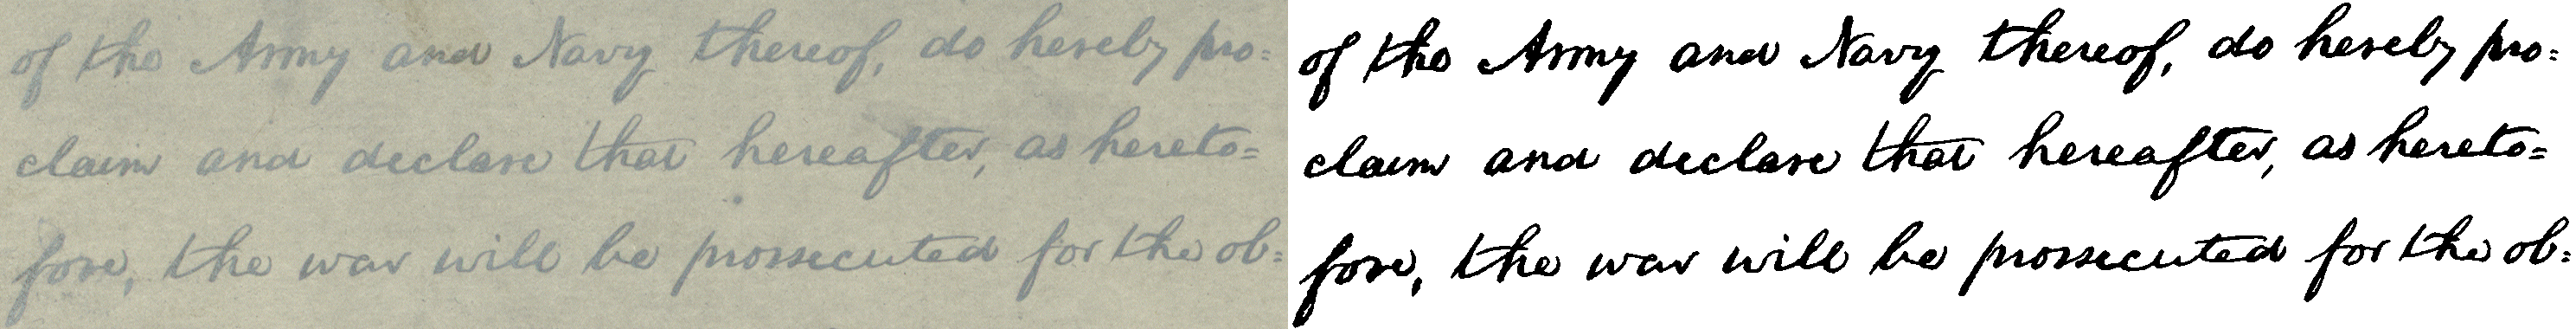 of the Army and Navy thereof, do hereby pro=
claim and declare that hereafter, as hereto=
fore, the war will be prossecuted for the ob=
of the Army and Navy thereof, do hereby pro=
claim and declare that hereafter, as hereto=
fore, the war will be prossecuted for the ob=